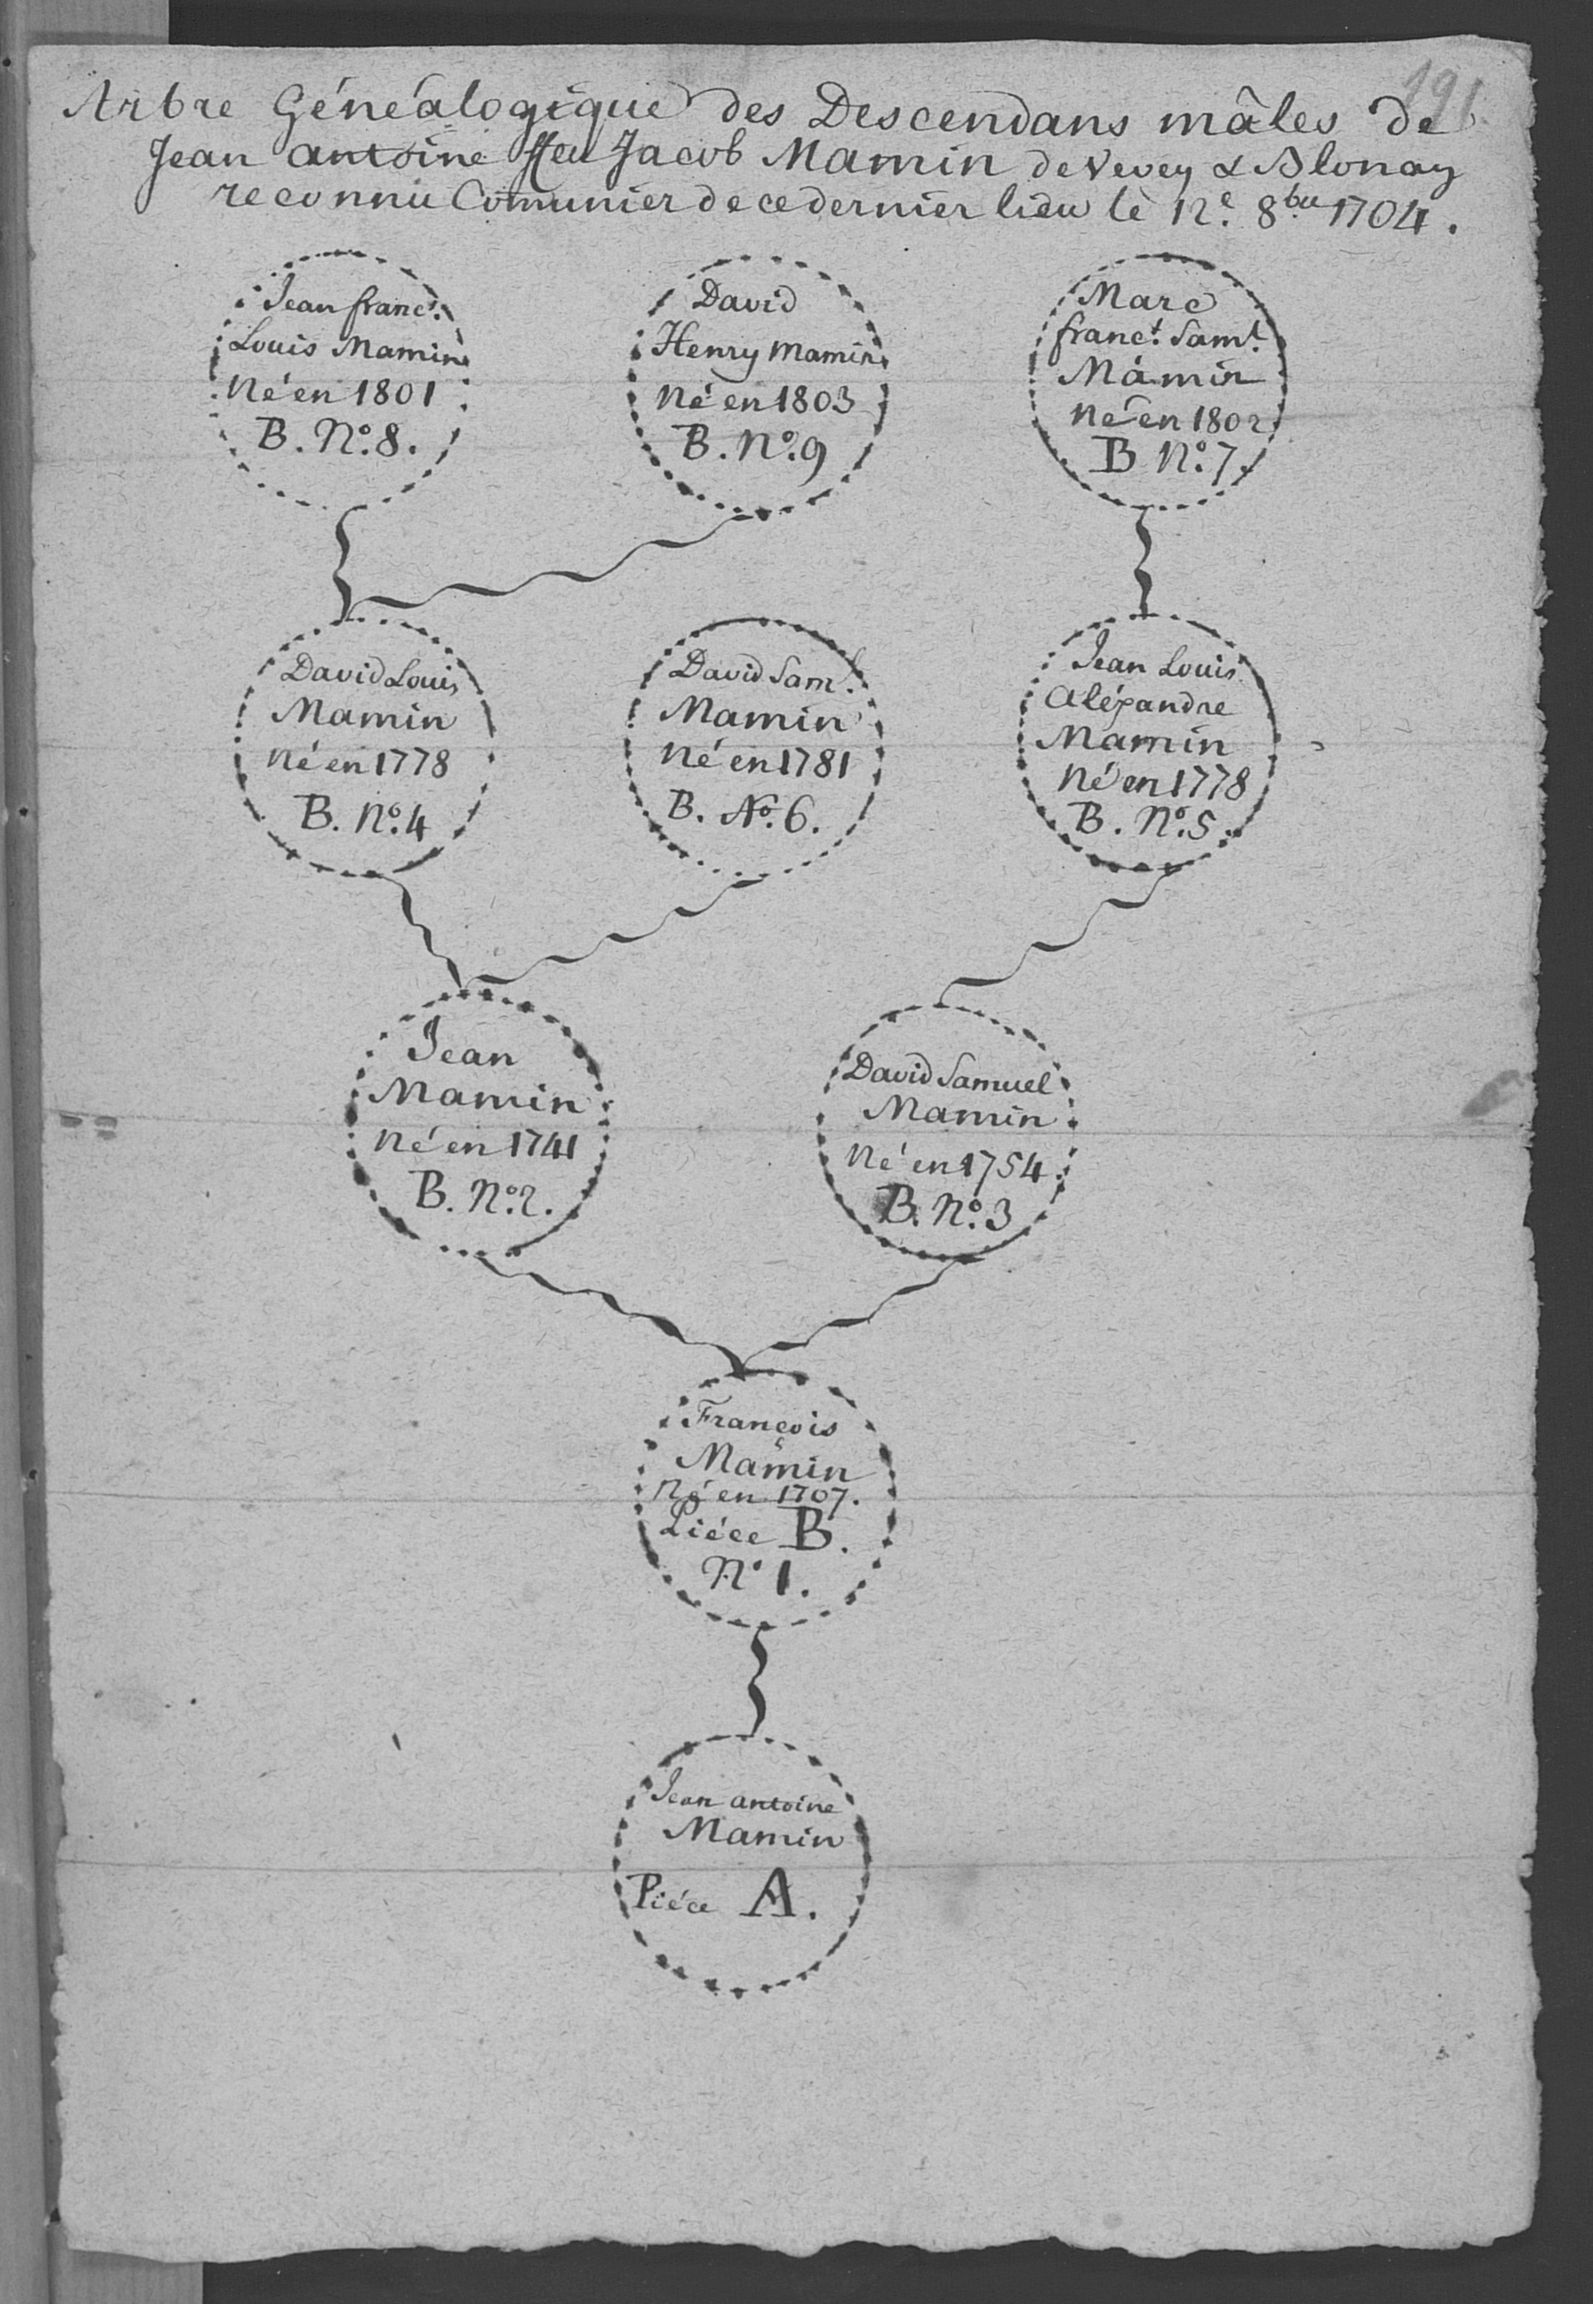 191.
Arbre Généalogique des Descendans mâles de
Jean antoine ffeu Jacob Mamin de Vevey & Blonay
reconnu Comunier de ce dernier lieu le 12e. 8bre 1704.
Jean franc.s
Louis Mamin
Né en 1801
B. No. 8.
David
Henry Mamin
Né en 1803
B. No. 9
Marc
franc.s Sam.l
Mamin
Né en 1802
B No. 7.
David Louis
Mamin
Né en 1778
B. No. 4
David Sam.l
Mamin
Né en 1781
B. No. 6.
Jean Louis
Aléxandre
Mamin
Né en 1778
B. No. 5.
Jean
Mamin
Né en 1741
B. No. 2.
David Samuel
Mamin
Né en 1754.
B. No. 3
François
Mamin
Né en 1707.
Piéce B.
No 1.
Jean antoine
Mamin
Piéce A.